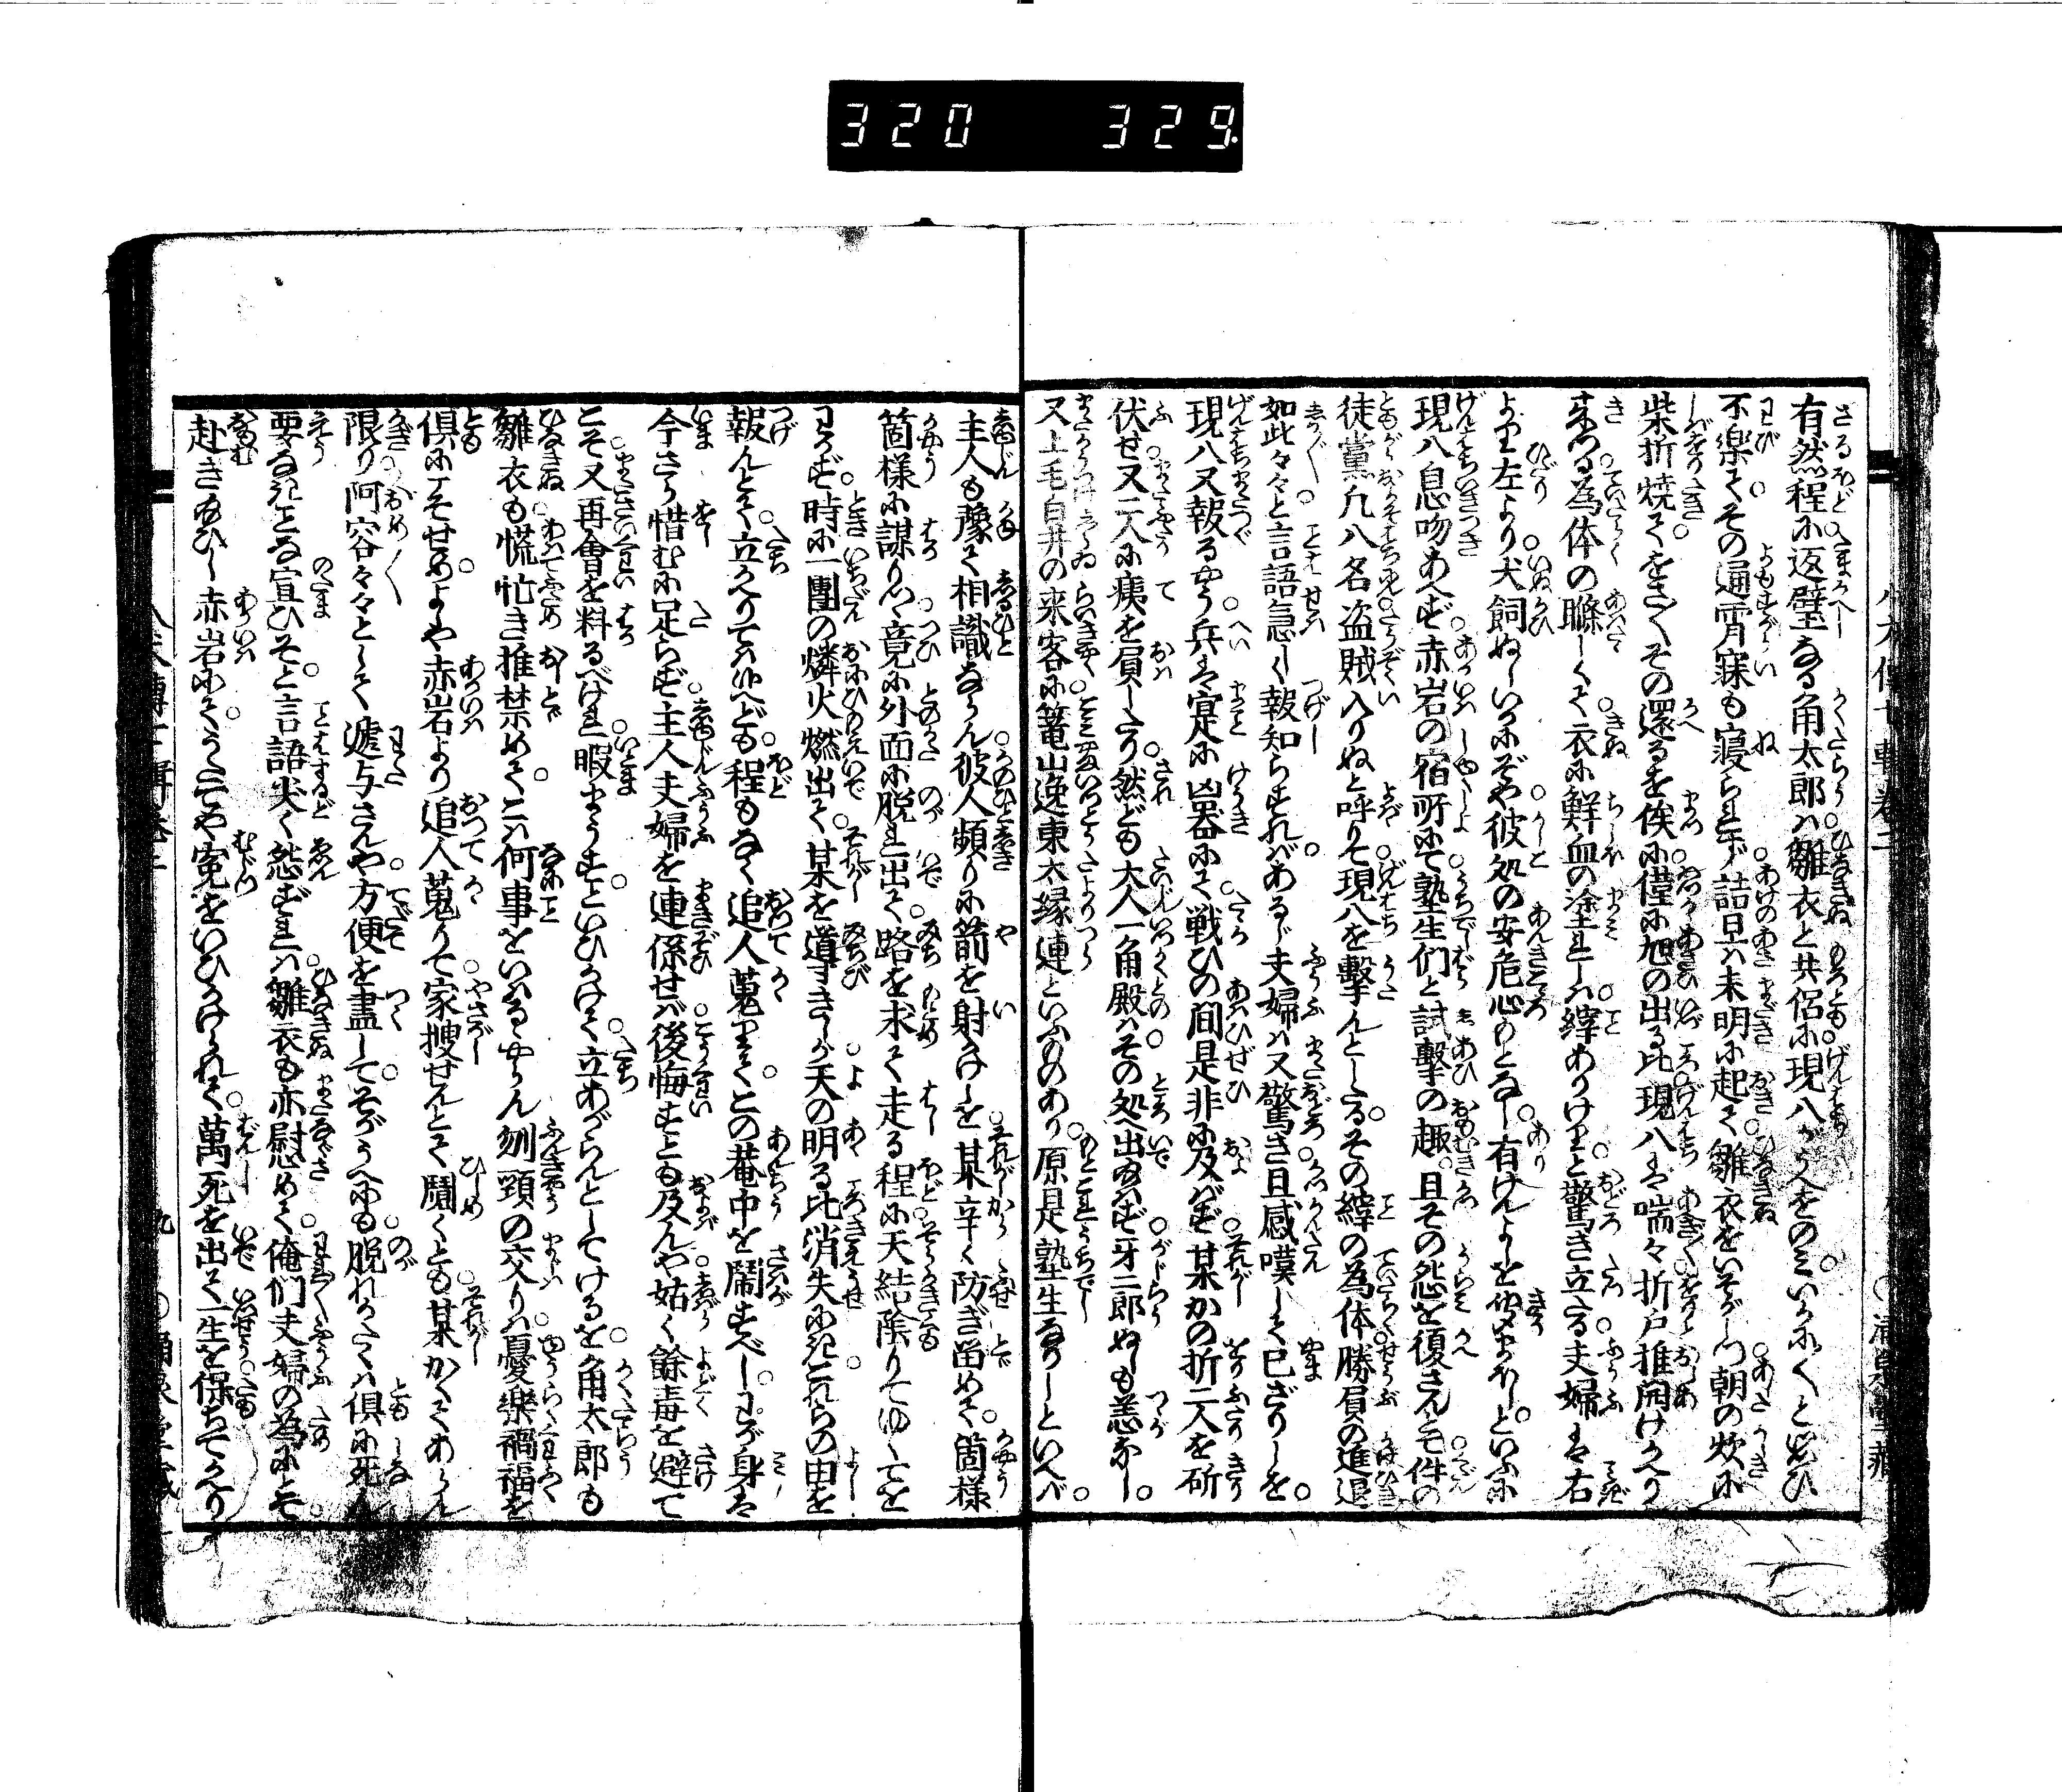 320 329
有然程に返璧なる角太郎は雛衣と共侶に現八がうへをのみいかにく〳〵と思ひ
不樂てその通宵寐も寝られず詰旦は未明に起て雛衣をいそがしつ朝の炊に
柴折焼てをさ〳〵その還るを俟に僅に旭の出る比現八は喘々折戸推開けかへり
来つる為体の聯しくて衣に鮮血の塗れしは縡ありけりと驚き立たる夫婦は右
より左より犬飼ぬしいかにぞや彼処の安危心もとなし有けんよしを聞まほしといふに
現八息吻あへず赤岩の宿所にて塾生們と試撃の趣且その怨を復さんと件の
徒黨凡八名盗賊入りぬと呼りて現八を撃んとしたるその縡の為体勝負の進退
如此々々と言語急しく報知らすればあるじ夫婦は又驚き且感嘆して已ざりしを
現八又報るやう兵は寔に凶器にて戦ひの間是非に及ばず某かの折二人を斫
伏せ又二人に痍を負したり然ども大人一角殿はその処へ出給はず牙二郎ぬしも恙なし
又上毛白井の来客に篭山逸東太縁連といふものあり原是塾生なりしといへば
主人も豫て相識ならん彼人頻りに箭を射かけしを某辛く防ぎ畄めて箇様
箇様に謀りつ竟に外面に脱れ出て路を求て走る程に天結陰りてゆくてを
わかず時に一團の燐火燃出て某を導きしが天の明る比消失にきこれらの由を
報んとて立かへりては候へども程もなく追人蒐りてこの菴中を鬧すべしわが身は
今さら惜むに足らず主人夫婦を連係せば後悔すとも及んや姑く餘毒を避て
こそ又再會を料るべけれ暇まうすといひかけて立あがらんとしてけるを角太郎も
雛衣も慌忙き推禁めてこは何事をいはるゝやらん刎頸の交りは憂樂禍福を
倶にこそせめよや赤岩より追人蒐りて家捜せんとて鬩くとも某かくてあらん
限り阿容々々として逓与さんや方便を盡してそがうへにも脱れがたくは倶に死ん
要なきことな宣ひそと言語尖く怨ずれは雛衣も亦慰めて俺們夫婦の為にとそ
赴き給ひし赤岩にてうたてや寃をいひかけられて萬死を出て一生を保ちてかへり